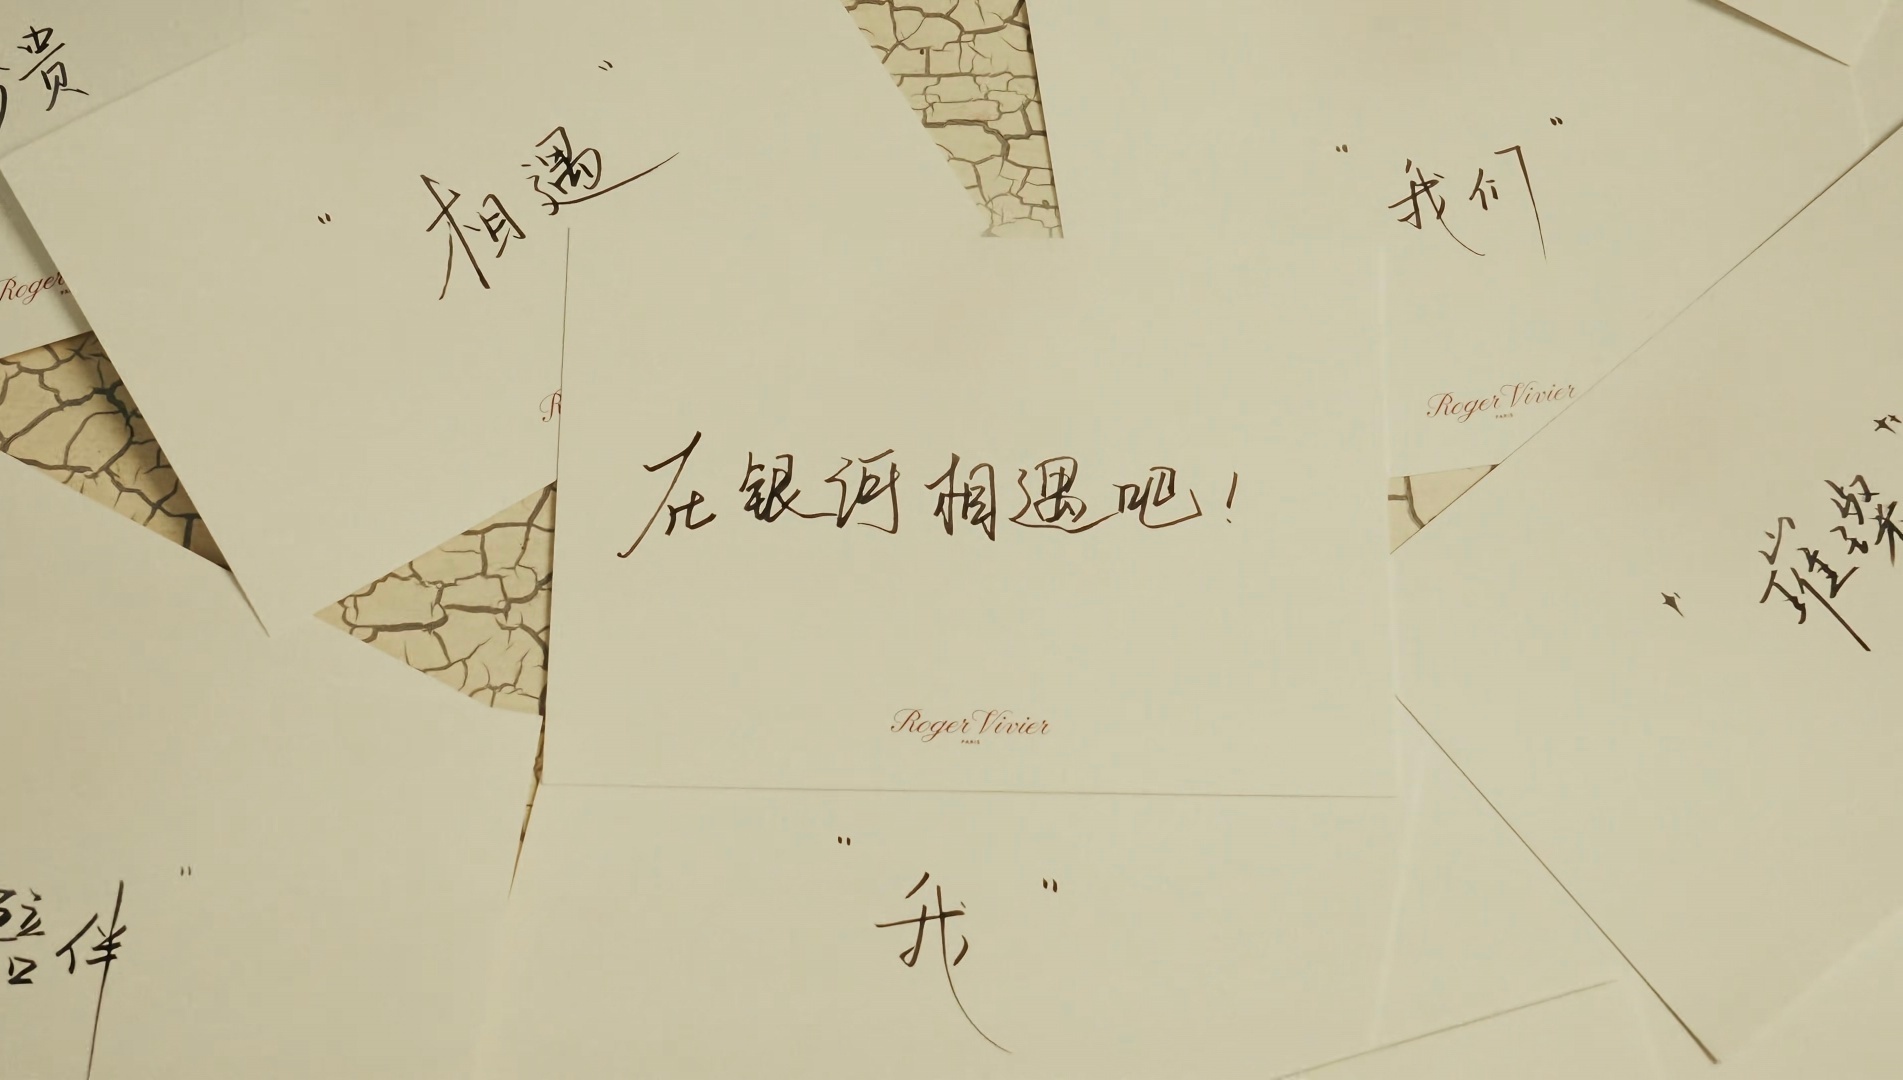 贵
"相遇"
"我们"
Roger
Roger Vivier
PARIS
在银河相遇吧!
璀璨"
Roger Vivier
PARIS
"我"
伴"